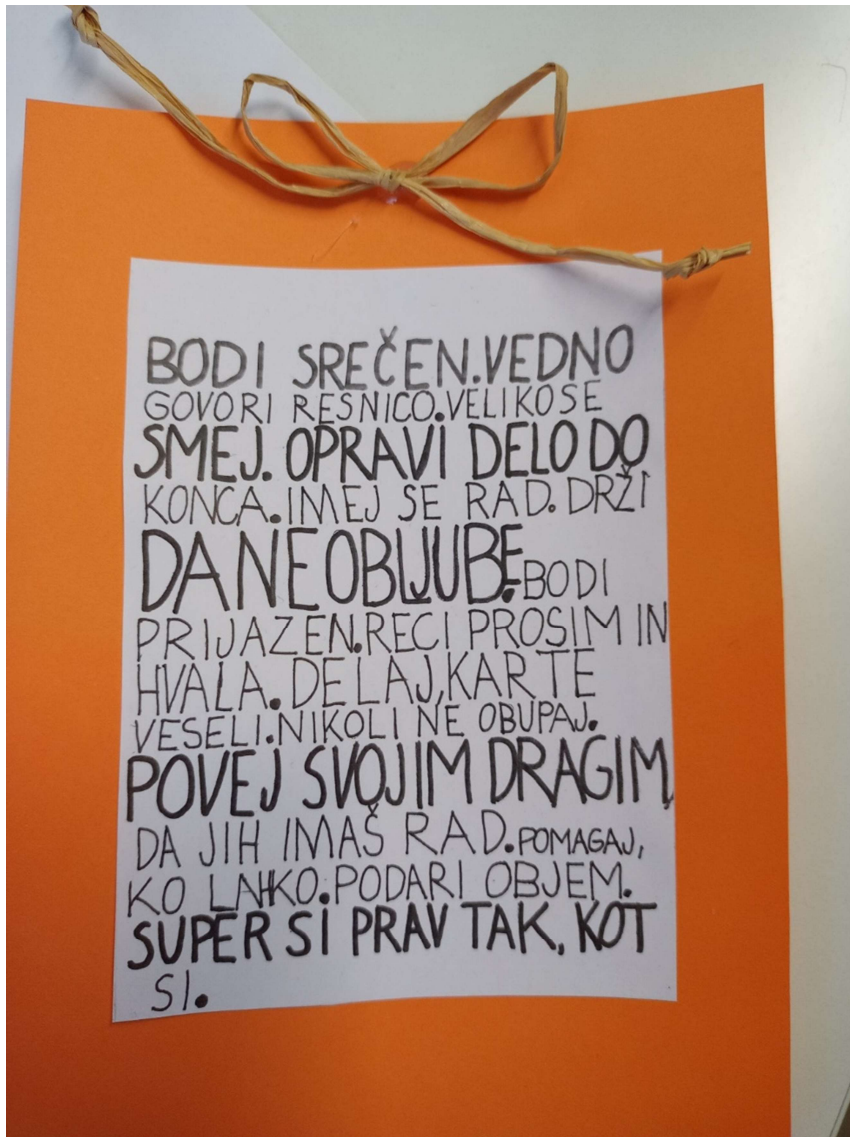 BODI SREČEN.VEDNO
GOVORI RESNICO.VELIKO SE
SMEJ. OPRAVI DELO DO
KONCA. IMEJ SE RAD. DRŽI
DANE OBLJUBE. BODI
PRIJAZEN.RECI PROSIM IN
HVALA. DELAJ,KAR TE
VESELI.NIKOLI NE OBUPAJ.
POVEJ SVOJIM DRAGIM,
DA JIH IMAŠ RAD. POMAGAJ,
KO LAHKO. PODARI OBJEM.
SUPER SI PRAV TAK, KOT
SI.